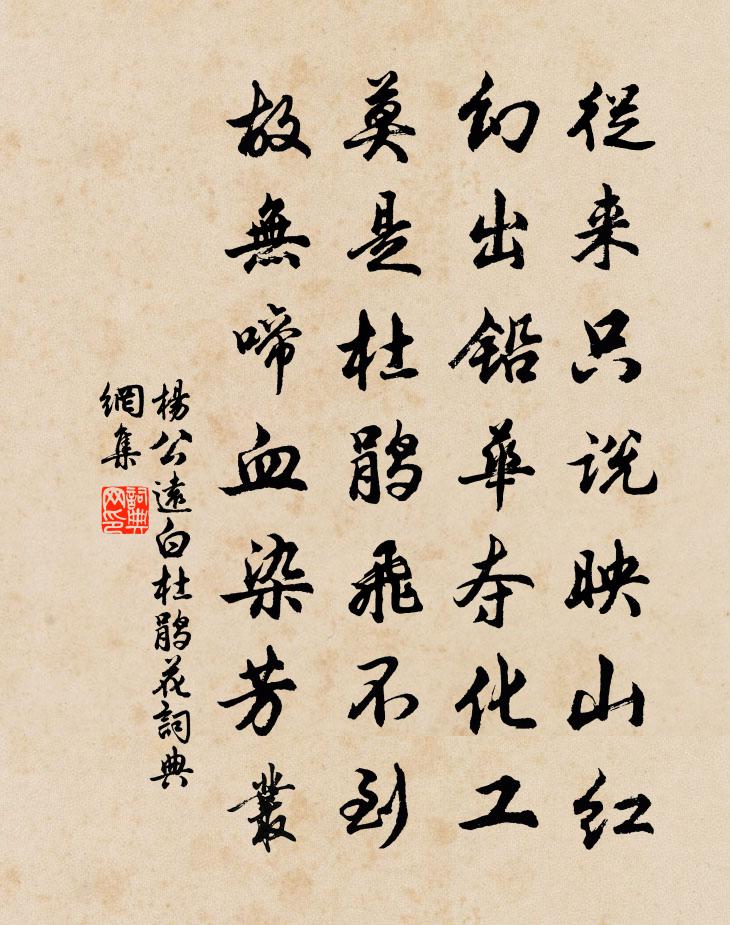 從来只説映山红
幻出铅華夺化工
莫是杜鹃飛不到
故無啼血染芳叢
楊公遠白杜鹃花詞典
網集
詞典网印